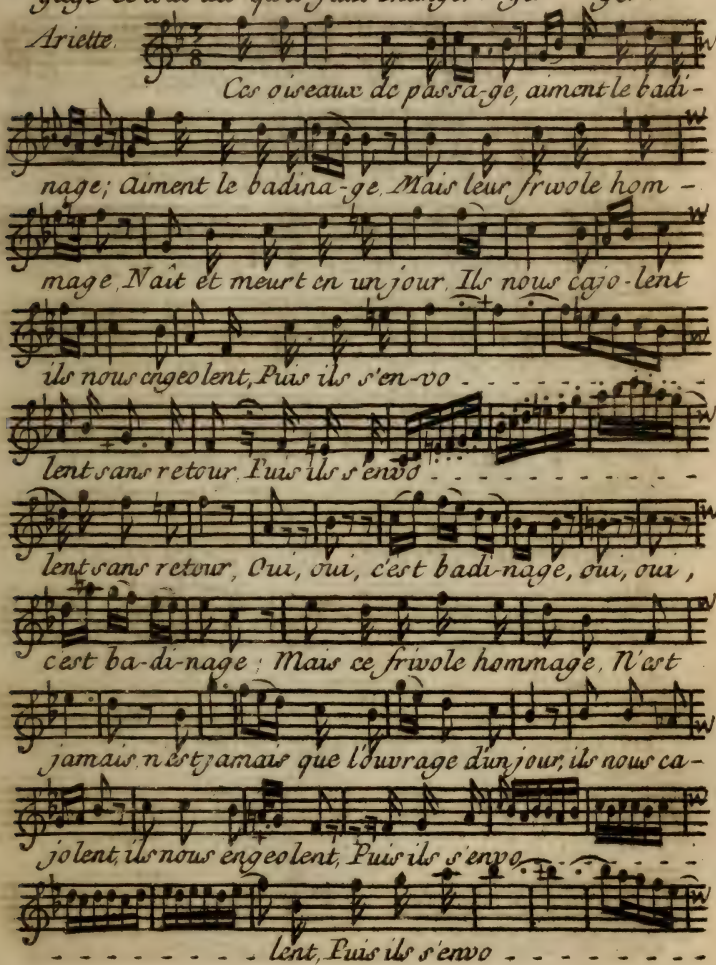 Ariette.
Ces oiseaux de passa-ge, aiment le badi-
nage; Aiment le badina-ge, Mais leur frivole hom-
mage, Naît et meurt en un jour, Ils nous cajo-lent
ils nous engeolent, Puis ils s'en-vo - - - - - - - -
lent sans retour, Puis ils s'envo - - - - - - - - - -
lent sans retour, Oui, oui, c'est badi-nage, oui, oui,
c'est ba-di-nage; Mais ce frivole hommage, N'est
jamais, n'est jamais que l'ouvrage d'un jour, ils nous ca-
jolent, ils nous engeolent, Puis ils s'envo - - - - - - -
- - - - - - - - lent, Puis ils s'envo - - - - - - - - -